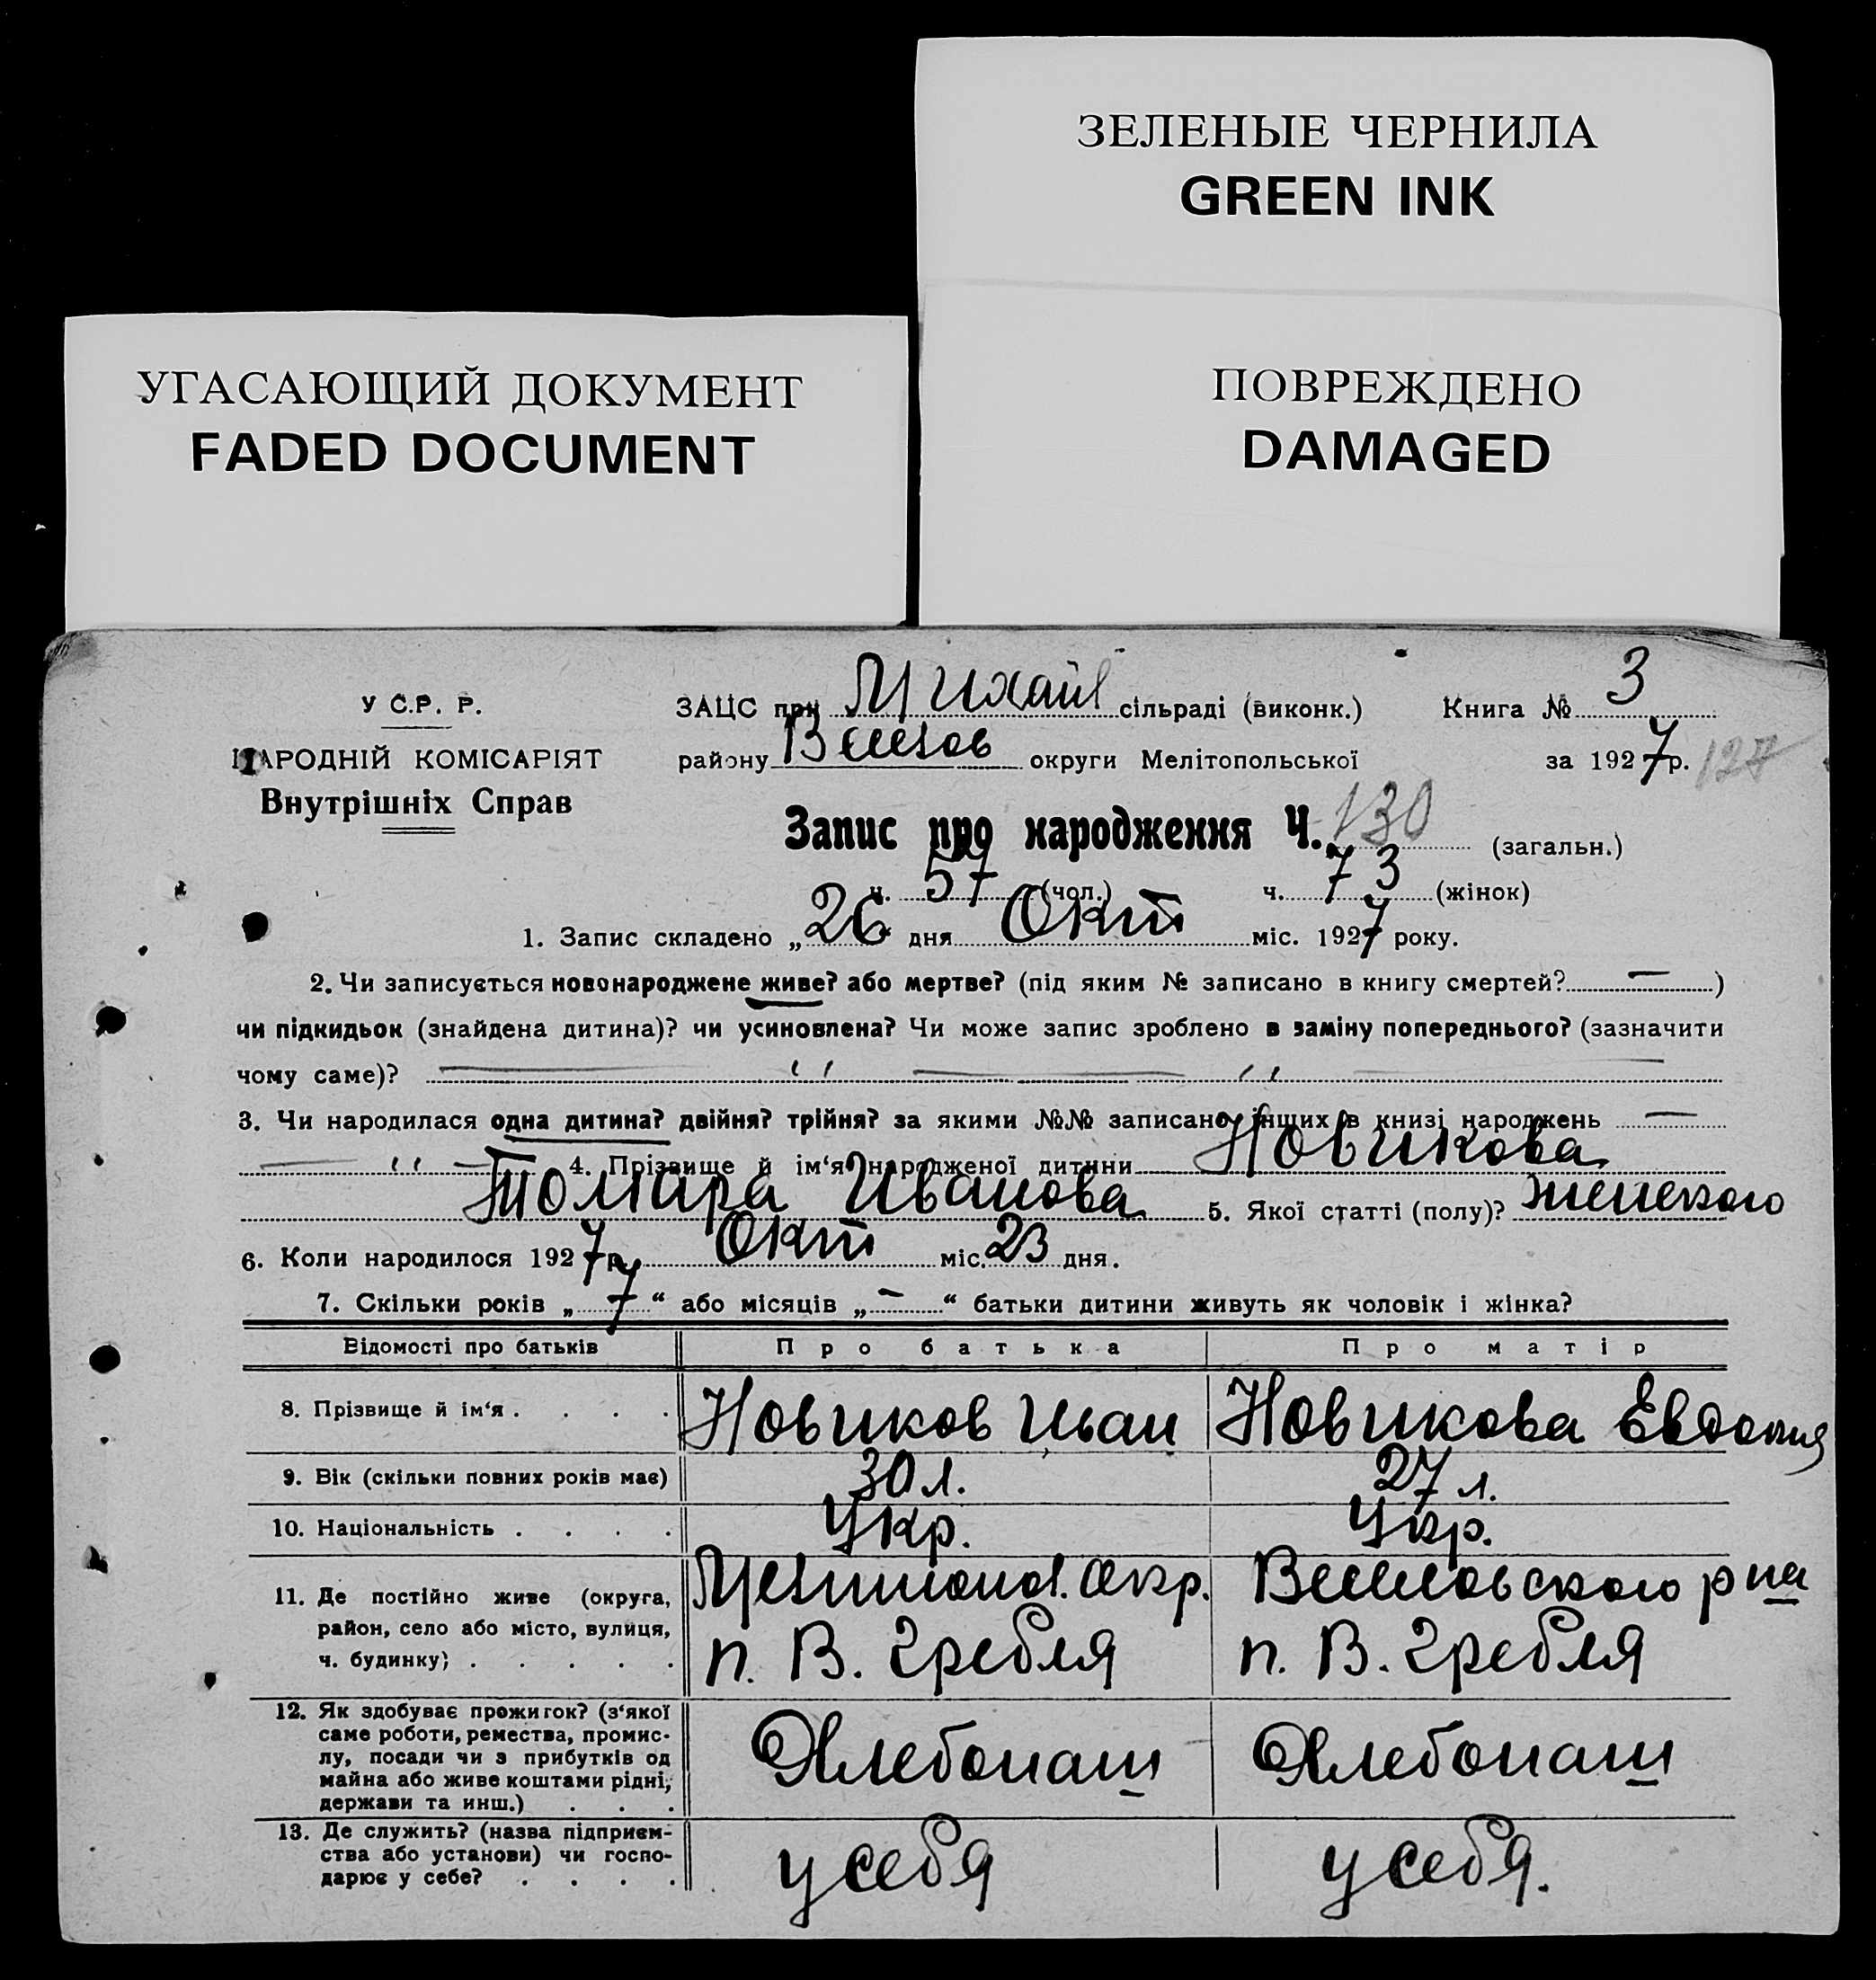 ЗЕЛЕНЫЕ ЧЕРНИЛА
GREEN INK
УГАСАЮЩИЙ ДОКУМЕНТ
FADED DOCUMENT
ПОВРЕЖДЕНО
DAMAGED
У С.Р. Р.
НАРОДНІЙ КОМІСАРІЯТ
Внутрішніх Справ
ЗАЦС при Михайл сільраді (виконк.) Книга № 3
району Весеלов округи Мелітопольської за 1927р. 127
Запис про народження Ч. 130 (загальн.)
ч. 57 (чол.) ч. 73 (жінок)
1. Запис складено „26“ дня Окт міс. 1927 року.
2. Чи записується новонароджене живе? або мертве? (під яким № записано в книгу смертей? — )
чи підкидьок (знайдена дитина)? чи усиновлена? Чи може запис зроблено в заміну попереднього? (зазначити
чому саме)? — " — — " —
3. Чи народилася одна дитина? двійня? трійня? за якими №№ записано інших в книзі народжень —
— " — 4. Прізвище й ім‘я народженої дитини Новикова
Томара Иванова 5. Якої статті (полу)? женского
6. Коли народилося 1927р. Окт міс. 23 дня.
7. Скільки років „7“ або місяців „—“ батьки дитини живуть як чоловік і жінка?
Відомості про батьків Про батька Про матір
8. Прізвище й ім‘я . . . . Новиков Иван Новикова Евдокия
9. Вік (скільки повних років має) 30 л. 27 л.
10. Національність . . . . Укр. Укр.
11. Де постійно живе (округа, Мелитопол. Окр. Веселовского р на
район, село або місто, вулиця,
ч. будинку) . . . . . п. В. Гребля п. В. Гребля
12. Як здобуває прожиток? (з‘якої
саме роботи, ремества, промис-
лу, посади чи з прибутків од
майна або живе коштами рідні,
держави та инш.) . . . Хлебопаш Хлебопаш
13. Де служить? (назва підприєм-
ства або установи) чи госпо-
дарює у себе? . . . . у себя у себя.